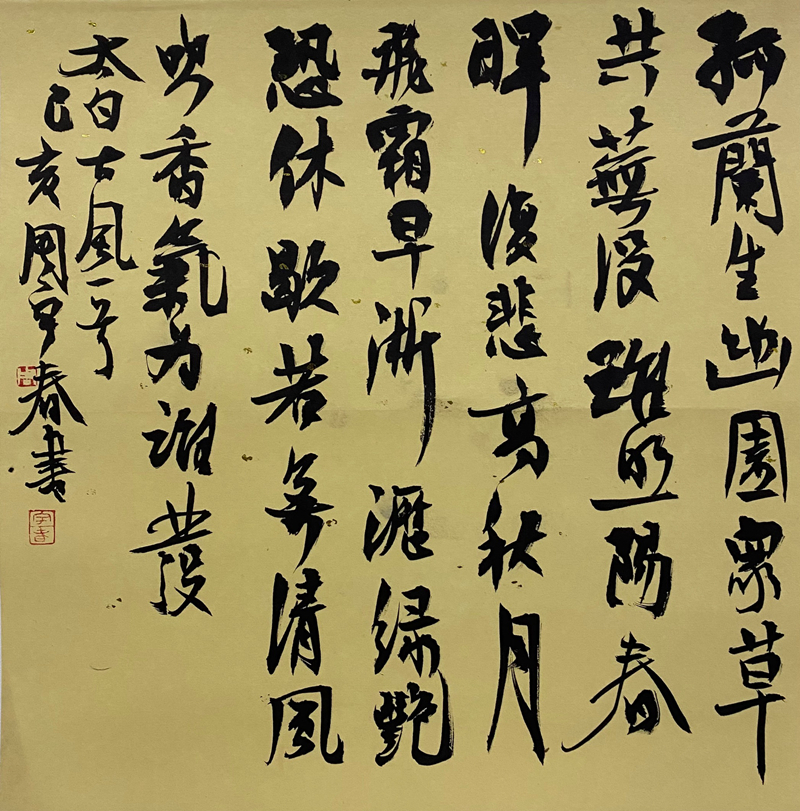 孤蘭生幽園眾草
共蕪沒雖照陽春
暉復悲高秋月
飛霜早淅瀝綠艷
恐休歇若無清風
吹香氣為誰發
太白古風一首
己亥國宇春書